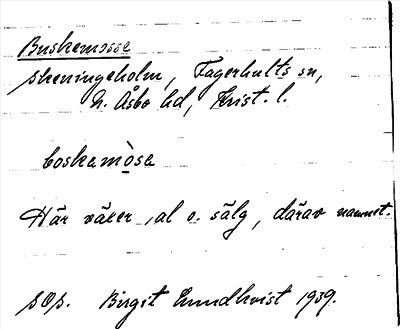 Buskemosse
Skeningeholm, Fagerhults sn,
N. Åsbo hd, Krist. l.
boskamòsa
Här växer al o. sälg, därav namnet.
SOp. Birgit Lundkvist 1939.